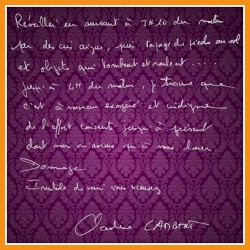 Réveillée en sursaut à 3h10 du matin
par des cris aigus, puis tapage du pieds au sol
et objets qui tombent et roulent ....
jusqu'à 4H du matin, je trouve que
c'est à nouveau exagéré et indigne
de l'effort consenti jusqu'à présent
dont nous
Dommage
Inutile de venir vous
Claudine